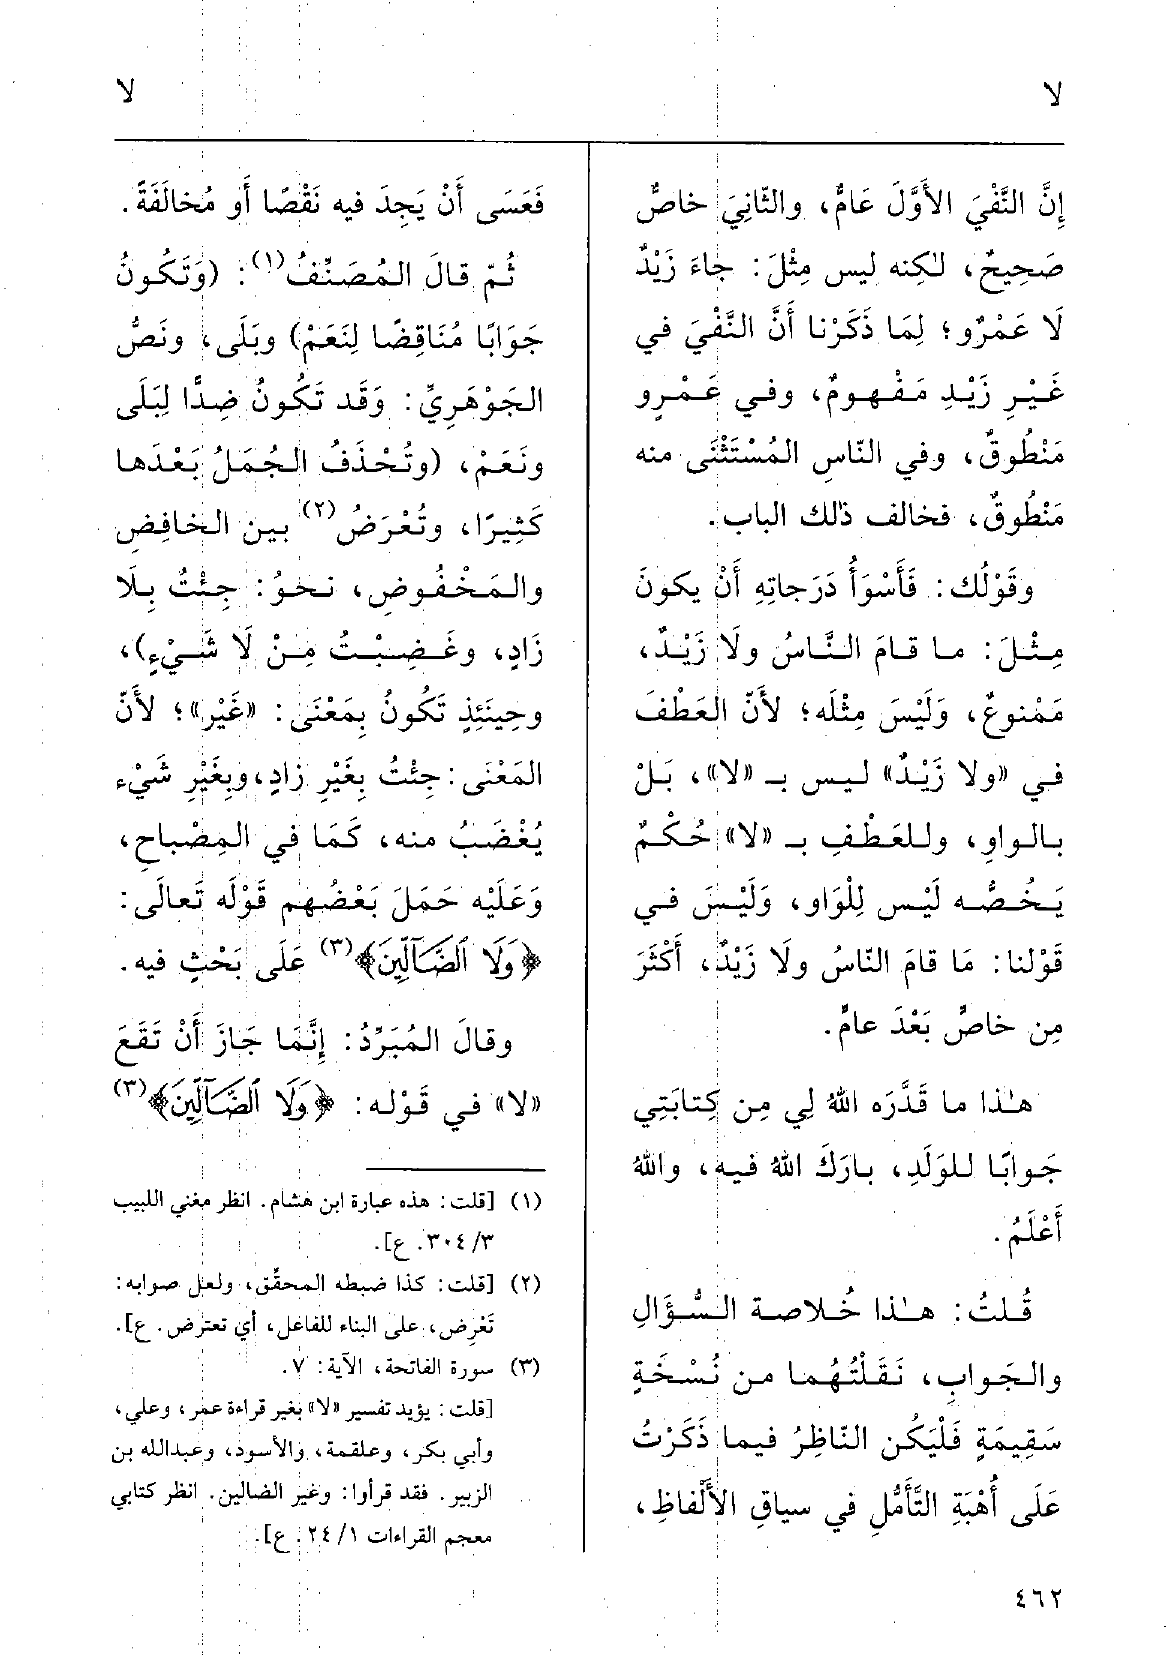 لا
لا
إِنَّ النَّفْيَ الأَوَّلَ عَامٌّ، والثّانِيَ خاصٌّ
صَحِيحٌ، لٰكِنه ليس مِثْلَ: جاءَ زَيْدٌ
لَا عَمْرٌو؛ لِمَا ذَكَرْنا أَنَّ النَّفْيَ في
غَيْرِ زَيْدٍ مَفْهومٌ، وفي عَمْرٍو
مَنْطُوقٌ، وفي النّاسِ المُسْتَثْنَى منه
مَنْطُوقٌ، فخالف ذٰلك الباب.
وقَوْلُك: فَأَسْوَأُ دَرَجاتِهِ أَنْ يكونَ
مِثْلَ: ما قامَ النَّاسُ ولَا زَيْدٌ،
مَمْنوعٌ، وَلَيْسَ مِثْلَه؛ لأَنّ العَطْفَ
في «ولا زَيْدٌ» ليس بـ «لا»، بَلْ
بالواوِ، وللعَطْفِ بـ «لا» حُكْمٌ
يَخُصُّه لَيْس لِلْوَاو، وَلَيْسَ في
قَوْلنا: مَا قامَ النّاسُ ولَا زَيْدٌ، أَكْثَرَ
مِن خاصٍّ بَعْدَ عامٍّ.
هٰذا ما قَدَّرَه اللهُ لِي مِن كِتابَتِي
جَوابًا للوَلَدِ، بارَكَ اللهُ فيه، واللهُ
أَعْلَمُ.
قُلتُ: هٰذا خُلاصة السُّؤَالِ
والجَوابِ، نَقَلْتُهُما من نُسْخَةٍ
سَقِيمَةٍ فَلْيَكُن النّاظِرُ فيما ذَكَرْتُ
عَلَى أُهْبَةِ التَّأَمُّلِ في سياقِ الأَلْفاظِ،
فَعَسَى أَنْ يَجِدَ فيه نَقْصًا أَو مُخالَفَةً.
ثُمّ قالَ المُصَنِّفُ(١): (وَتَكُونُ
جَوَابًا مُنَاقِضًا لِنَعَمْ) وبَلَى، ونَصُّ
الجَوْهَرِيِّ: وَقَد تَكُونُ ضِدًّا لِبَلَى
ونَعَمْ، (وتُحْذَفُ الجُمَلُ بَعْدَها
كَثِيرًا، وتُعْرَضُ(٢) بين الخافِضِ
والمَخْفُوضِ، نحوُ: جِئْتُ بِلَا
زَادٍ، وغَضِبْتُ مِنْ لَا شَيْءٍ)،
وحِينَئِذٍ تَكُونُ بِمَعْنَى: «غَيْر»؛ لأَنّ
المَعْنَى: جِئْتُ بِغَيْرِ زادٍ، وبِغَيْرِ شَيْء
يُغْضَبُ منه، كَمَا في المِصْباحِ،
وَعَلَيْه حَمَلَ بَعْضُهم قَوْلَه تَعالَى:
﴿وَلَا ٱلضَّآلِّينَ﴾(٣) عَلَى بَحْثٍ فيه.
وقالَ المُبَرِّدُ: إِنَّمَا جَازَ أَنْ تَقَعَ
«لا» في قَوْله: ﴿وَلَا ٱلضَّآلِّينَ﴾(٣)
(١) [قلت: هذه عبارة ابن هشام. انظر مغني اللبيب
٣٠٤/٣. ع].
(٢) [قلت: كذا ضبطه المحقّق، ولعل صوابه:
تَعْرِض، على البناء للفاعل، أي تعترض. ع].
(٣) سورة الفاتحة، الآية: ٧.
[قلت: يؤيد تفسير «لا» بغير قراءة عمر، وعلي،
وأبي بكر، وعلقمة، والأسود، وعبدالله بن
الزبير. فقد قرأوا: وغير الضالين. انظر كتابي
معجم القراءات ٢٤/١. ع].
٤٦٢